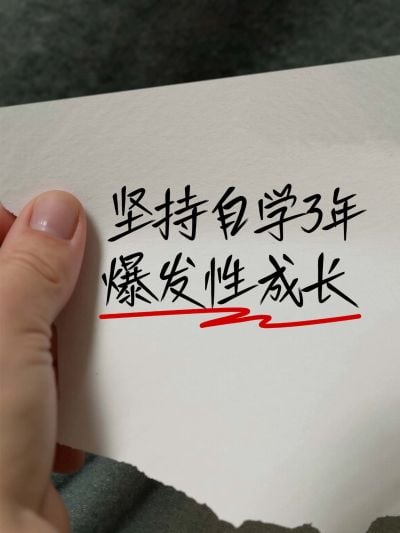 坚持自学3年
爆发性成长